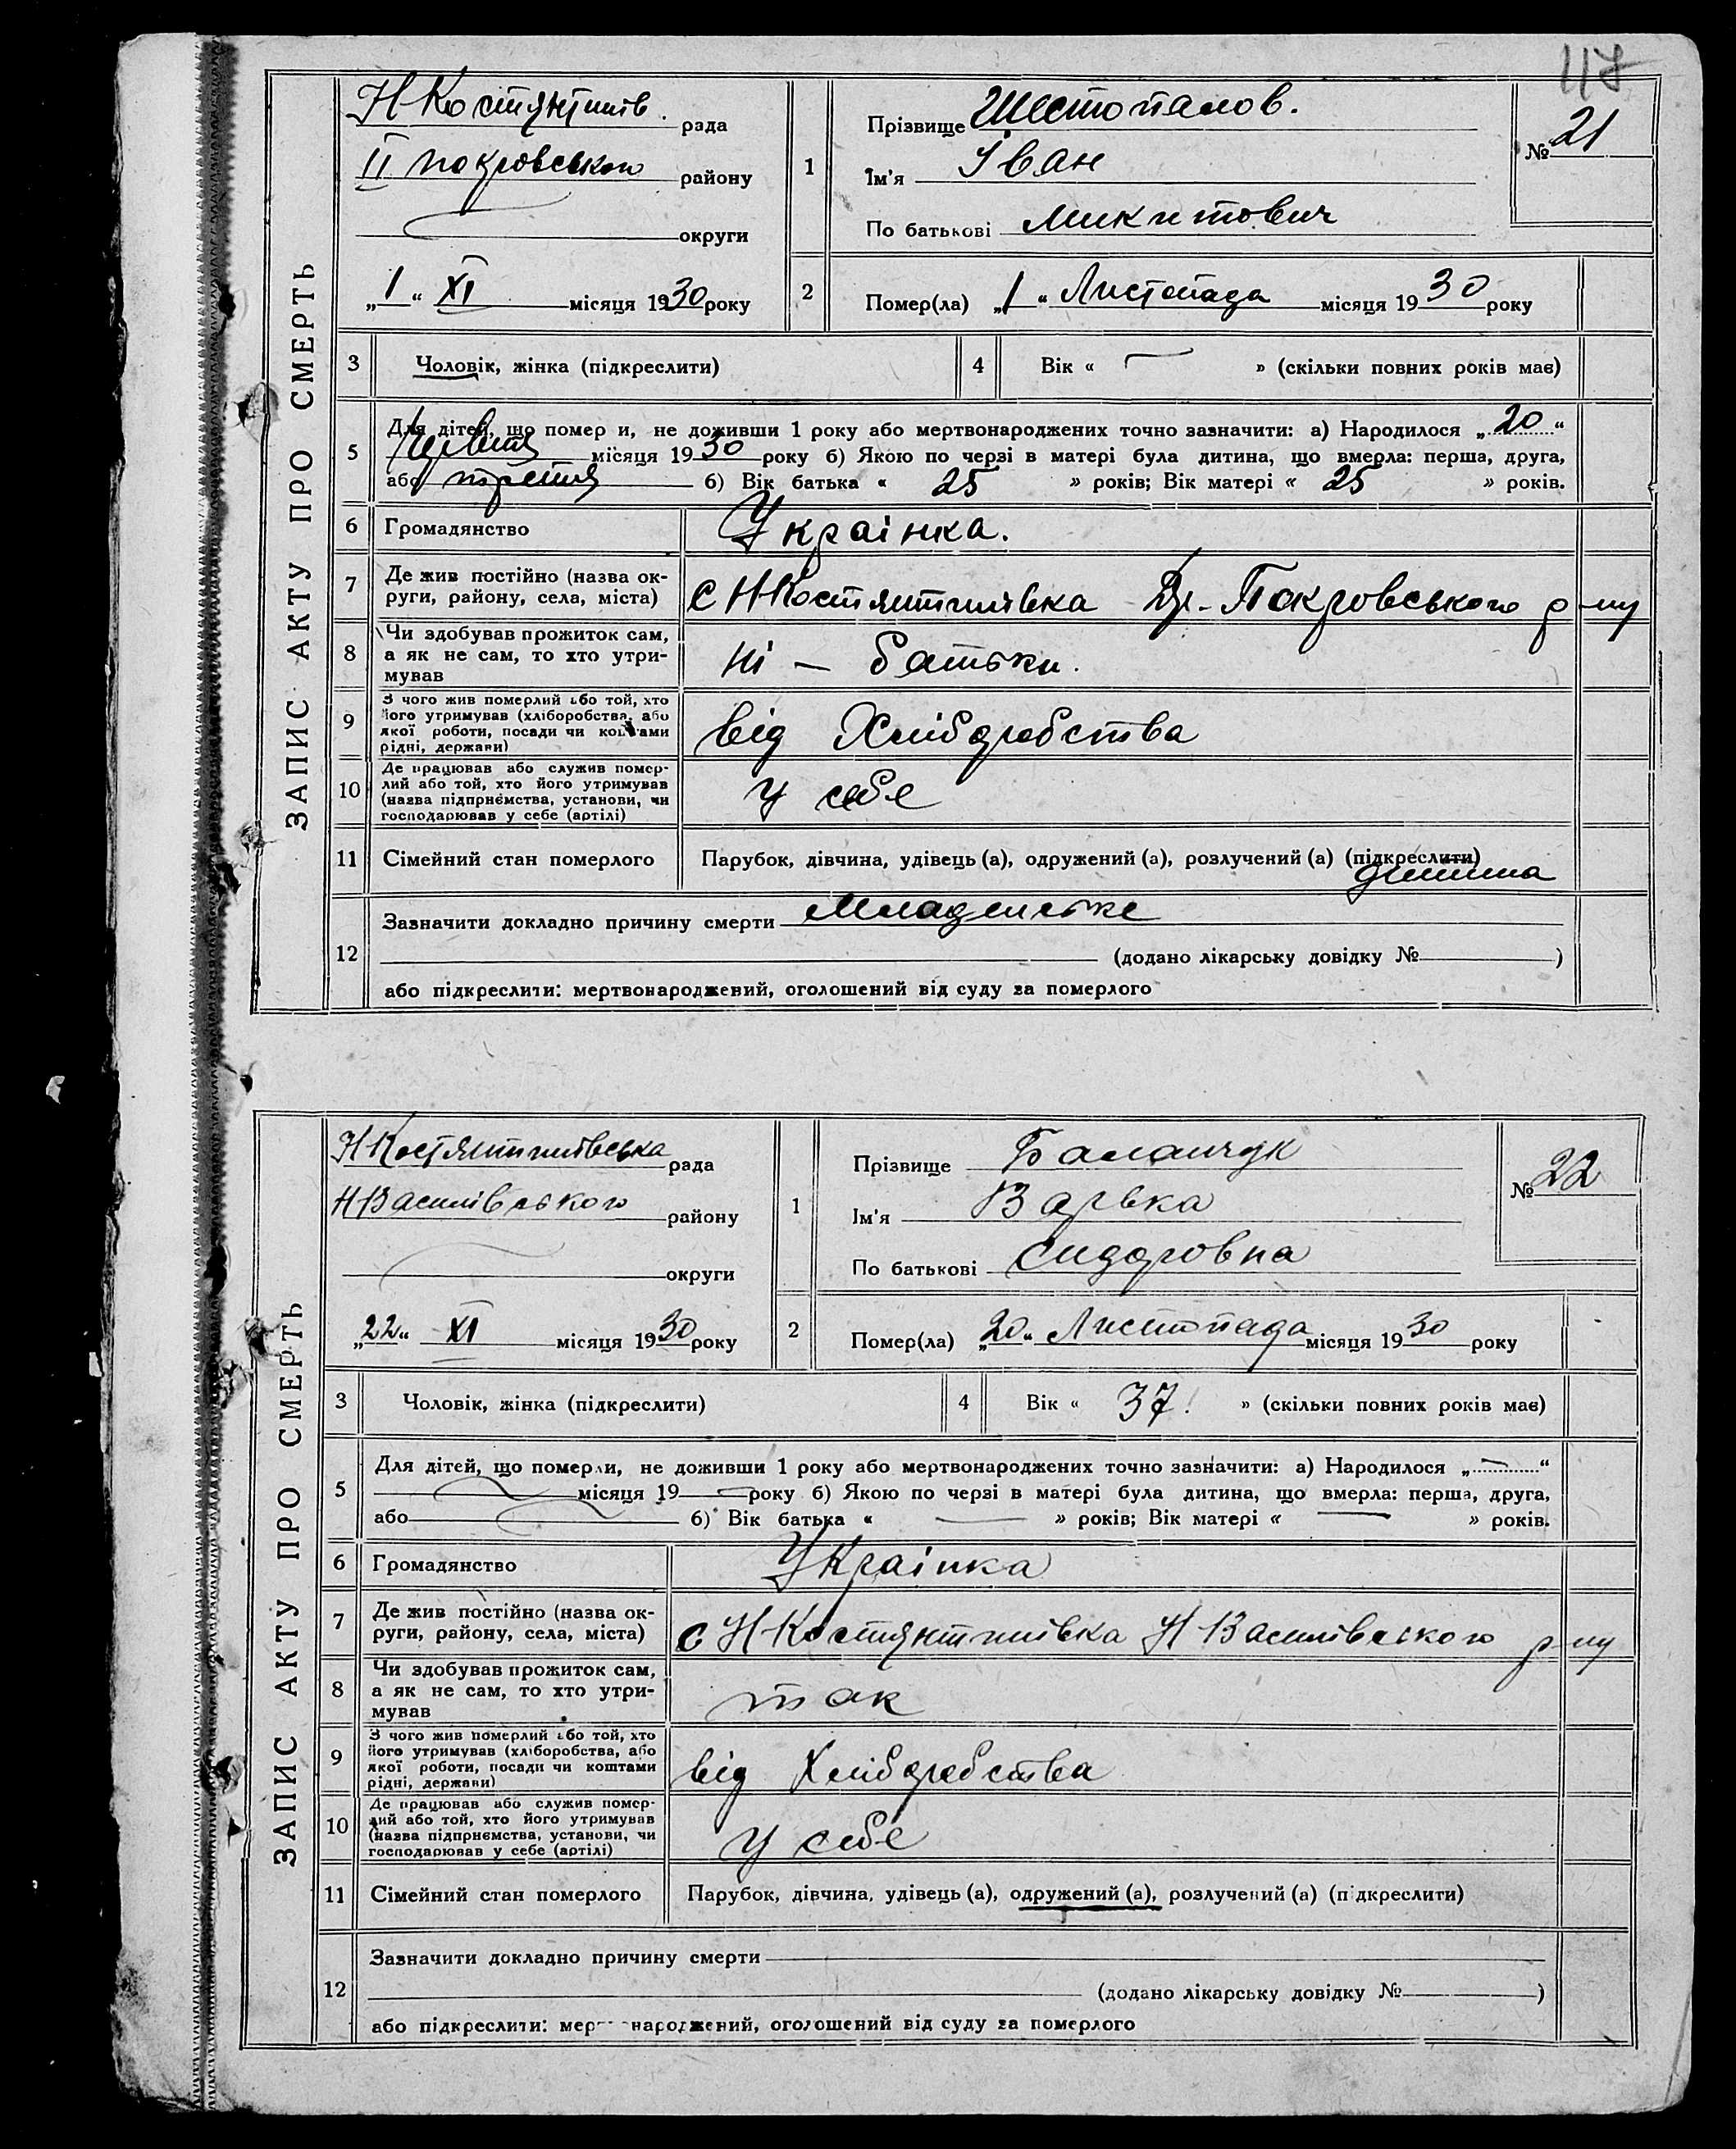 117
ЗАПИС АКТУ ПРО СМЕРТЬ
Н Костянтинів. рада
II Покровського району
округи
„1“ XI місяця 1930 року
1
Прізвище Шестопалов.
Ім'я Іван
По батькові Микитович
№ 21
2
Помер(ла) „1“ Листопада місяця 1930 року
3 Чоловік, жінка (підкреслити)
4 Вік « » (скільки повних років має)
5
Для дітей, що померли, не доживши 1 року або мертвонароджених точно зазначити: а) Народилося „20“
місяця 1930 року б) Якою по черзі в матері була дитина, що вмерла: перша, друга,
або третя б) Вік батька « 25 » років; Вік матері « 25 » років.
6 Громадянство Українка.
7 Де жив постійно (назва ок-
руги, району, села, міста) с Н-Костянтинівка Покровського р-ну
8 Чи здобував прожиток сам,
а як не сам, то хто утри-
мував ні — батьки.
9 З чого жив померлий або той, хто
його утримував (хліборобства, або
якої роботи, посади чи коштами
рідні, держави) від Хліборобства
10 Де працював або служив помер-
лий або той, хто його утримував
(назва підприємства, установи, чи
господарював у себе (артілі) у себе
11 Сімейний стан померлого Парубок, дівчина, удівець (а), одружений (а), розлучений (а) (підкреслити)
дитина
12
Зазначити докладно причину смерти Младенське
(додано лікарську довідку № )
або підкреслити: мертвонароджений, оголошений від суду за померлого
ЗАПИС АКТУ ПРО СМЕРТЬ
Н Костянтинівська рада
Н Василівського району
округи
„22“ XI місяця 1930 року
1
Прізвище Баланчук
Ім'я Варька
По батькові Сидоровна
№ 22
2
Помер(ла) „20“ Листопада місяця 1930 року
3 Чоловік, жінка (підкреслити)
4 Вік « 37. » (скільки повних років має)
5
Для дітей, що померли, не доживши 1 року або мертвонароджених точно зазначити: а) Народилося „ “
місяця 19 року б) Якою по черзі в матері була дитина, що вмерла: перша, друга,
або б) Вік батька « — » років; Вік матері « — » років.
6 Громадянство Українка
7 Де жив постійно (назва ок-
руги, району, села, міста) с Н-Костянтинівка Н Василівського р-ну
8 Чи здобував прожиток сам,
а як не сам, то хто утри-
мував так
9 З чого жив померлий або той, хто
його утримував (хліборобства, або
якої роботи, посади чи коштами
рідні, держави) від Хліборобства
10 Де працював або служив помер-
лий або той, хто його утримував
(назва підприємства, установи, чи
господарював у себе (артілі) у себе
11 Сімейний стан померлого Парубок, дівчина, удівець (а), одружений (а), розлучений (а) (підкреслити)
12
Зазначити докладно причину смерти
(додано лікарську довідку № )
або підкреслити: мертвонароджений, оголошений від суду за померлого